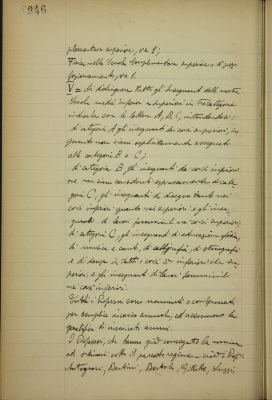 936
plementare superiore, ore 1;
Fisica nella Scuola Complementare superiore e di perfezionamento, ore 1.
V = Si distinguono tutti gli insegnanti delle nostre
Scuole medie inferiori e superiori in tre categorie
indicate con le lettere A, B, C, intendendosi:
di categoria A gli insegnanti dei corsi superiori, in
quanto non siano esplicitamente assegnati
alle categorie B o C;
di categoria B, gli insegnanti dei corsi inferiori
ove non siano considerati espressamente di cate-
goria C, gli insegnanti di disegno tanto nei
corsi inferiori quanto nei superiori e gli inse-
gnanti di lavori femminili nei corsi superiori;
di categoria C, gli insegnanti di educazione fisica,
di musica e canto, di calligrafia, di stenografia
e di danza in tutti i corsi sia inferiori che su-
periori; e gli insegnanti di lavori femminili
nei corsi inferiori.
Tutti i Professori sono nominati e confermati
per semplice incarico annuale, ed assumono la
qualifica di incaricati annui.
I Professori, che hanno già conseguito la nomina
ad ordinari sotto il passato regime, cioè i Prof.